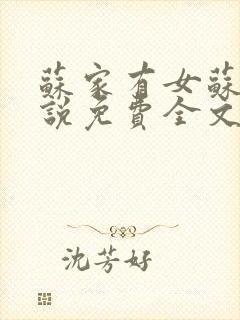 蘇家有女蘇
說免費全文
沈芳好